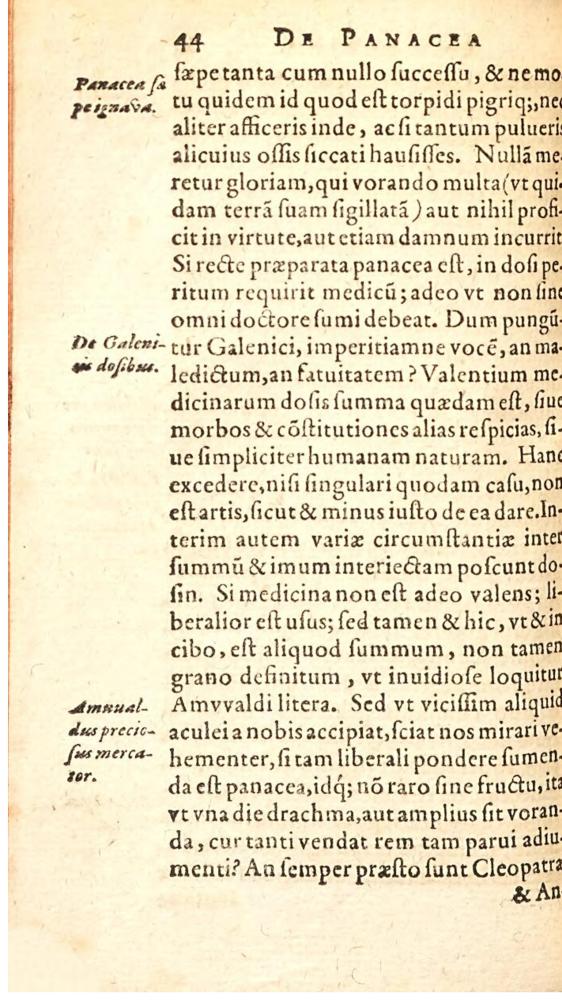 44 DE PANACEA
Panacea sæ
pe ignava.
sæpe tanta cum nullo successu, & ne mo
tu quidem id quod est torpidi pigriq;, nec
aliter afficeris inde, ac si tantum pulueris
alicuius ossis siccati hausisses. Nullã me-
retur gloriam, qui vorando multa (vt qui-
dam terrã suam sigillatã) aut nihil profi-
cit in virtute, aut etiam damnum incurrit
Si recte præparata panacea est, in dosi pe-
ritum requirit medicũ; adeo vt non sine
omni doctore sumi debeat. Dum pungũ-
De Galeni-
cis dosibus.
tur Galenici, imperitiamne vocẽ, an ma-
ledictum, an fatuitatem? Valentium me-
dicinarum dosis summa quædam est, siue
morbos & cõstitutiones alias respicias, si-
ue simpliciter humanam naturam. Hanc
excedere, nisi singulari quodam casu, non
est artis, sicut & minus iusto de ea dare. In-
terim autem variæ circumstantiæ inter
summũ & imum interiectam poscunt do-
sin. Si medicina non est adeo valens; li-
beralior est usus; sed tamen & hic, vt & in
cibo, est aliquod summum, non tamen
grano definitum, vt inuidiose loquitur
Amuual-
dus precio-
sus merca-
tor.
Amvvaldi litera. Sed vt vicissim aliquid
aculei a nobis accipiat, sciat nos mirari ve-
hementer, si tam liberali pondere sumen-
da est panacea, idq́; nõ raro sine fructu, ita
vt vna die drachma, aut amplius sit voran-
da, cur tanti vendat rem tam parui adiu-
menti? An semper præsto sunt Cleopatra
& An-